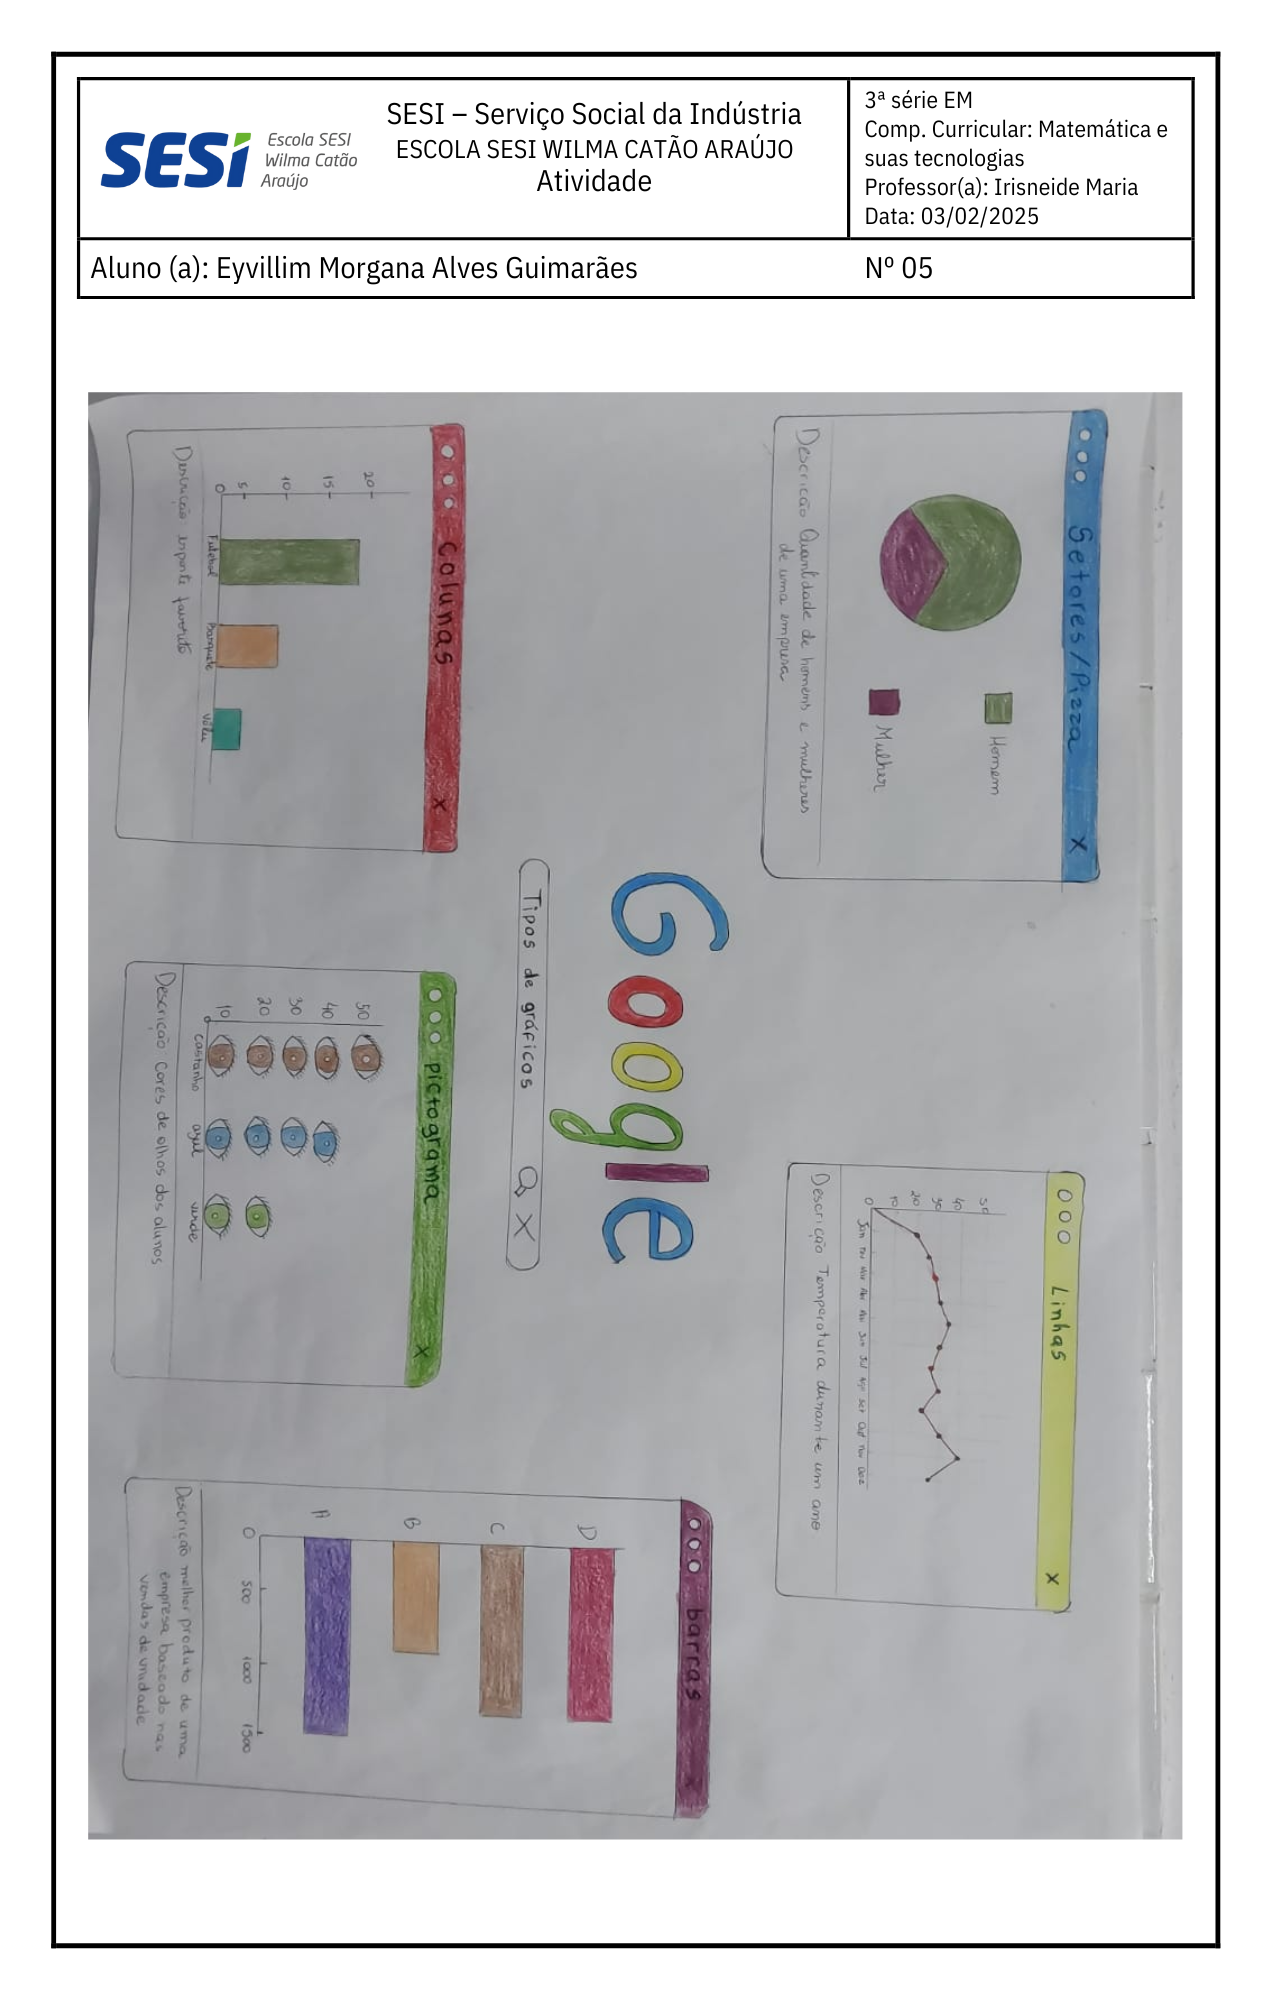 SESI
Escola SESI
Wilma Catão
Araújo
SESI – Serviço Social da Indústria
ESCOLA SESI WILMA CATÃO ARAÚJO
Atividade
3ª série EM
Comp. Curricular: Matemática e
suas tecnologias
Professor(a): Irisneide Maria
Data: 03/02/2025
Aluno (a): Eyvillim Morgana Alves Guimarães
Nº 05
Setores/Pizza X
Homem
Mulher
Descricão Quantidade de homens e mulheres
de uma empresa
Linhas X
50
40
30
20
10
0
Jan
Descricão Temperatura durante um ano
Google
Tipos de gráficos X
Colunas X
20
15
10
5
0
Futebol Basquete Vôlei
Descrição esporte favorito
pictograma X
50
40
30
20
10
castanho azul verde
Descricão Cores de olhos dos alunos
barras X
D
C
B
A
0 500 1000 1500
Descrição melhor produto de uma
empresa baseado nas
vendas de unidade